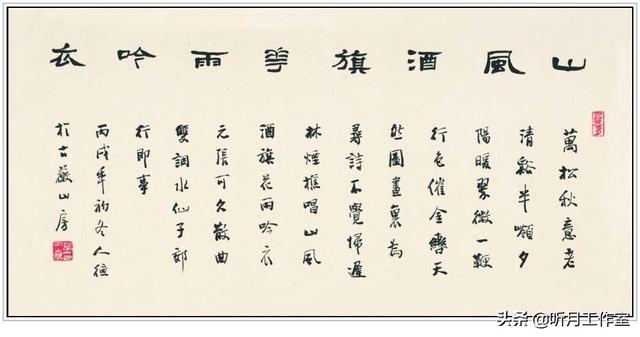 山風酒旗華雨吟衣
萬松秋意老
清谿半嶺夕
陽暖翠微一鞭
行色催金轡天
然圖畫裏為
尋詩不覺歸遲
林煙樵唱山風
酒旗花雨吟衣
元張可久散曲
雙調水仙子郊
行即事
丙戌年初冬人德
於古山房
头条@听月工作室